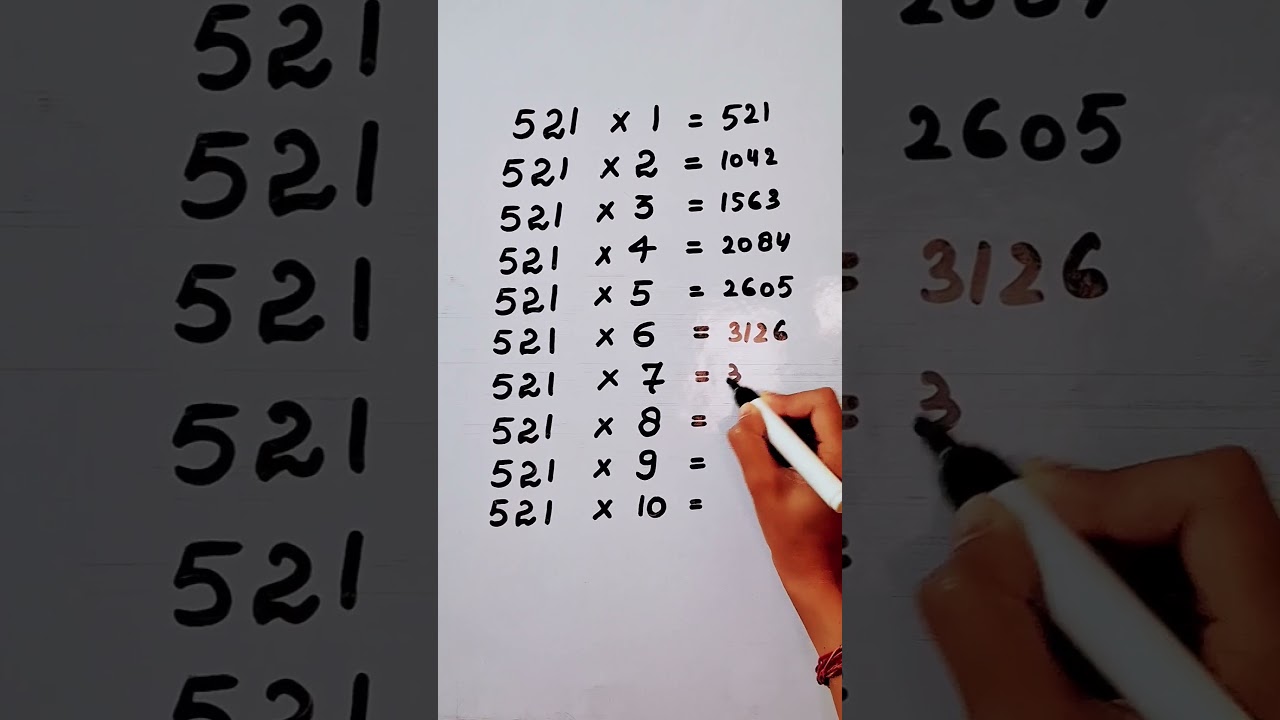 521 × 1 = 521
521 × 2 = 1042
521 × 3 = 1563
521 × 4 = 2084
521 × 5 = 2605
521 × 6 = 3126
521 × 7 = 3
521 × 8 =
521 × 9 =
521 × 10 =